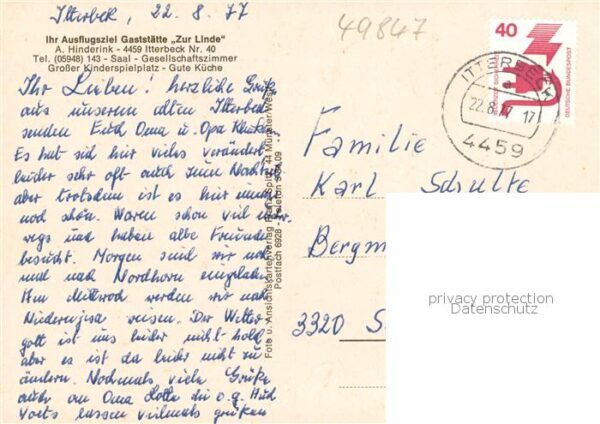 Itterbeck, 22. 8. 77
49847
Ihr Ausflugsziel Gaststätte „Zur Linde"
A. Hinderink - 4459 Itterbeck Nr. 40
Tel. (05948) 143 - Saal - Gesellschaftszimmer
Großer Kinderspielplatz - Gute Küche
Ihr Lieben! herzliche Grüße
aus unserem alten Itterbeck
senden Euch Oma u. Opa
Es hat sich hier vieles verändert
leider sehr oft auch zum Nachteil
aber trotzdem ist es hier immer
noch schön. Waren schon viel unter-
wegs und haben alte Freunde
besucht. Morgen sind wir
und nach Nordhorn eingeladen
Am Mittwoch werden wir nach
reisen. Der Wetter-
gott ist uns leider nicht hold
aber es ist da leider nicht zu
ändern. Nochmals viele Grüße
auch an Oma Lotte die o. g.
lassen vielmals grüßen
Foto u. Ansichtskartenverlag 44 Münster/Westf.
Postfach 6928 - Telefon
40
DEUTSCHE BUNDESPOST
ITTERBECK
a
22.8.77 17
4459
Familie
Karl Schulte
Bergm
3320 S
privacy protection
Datenschutz